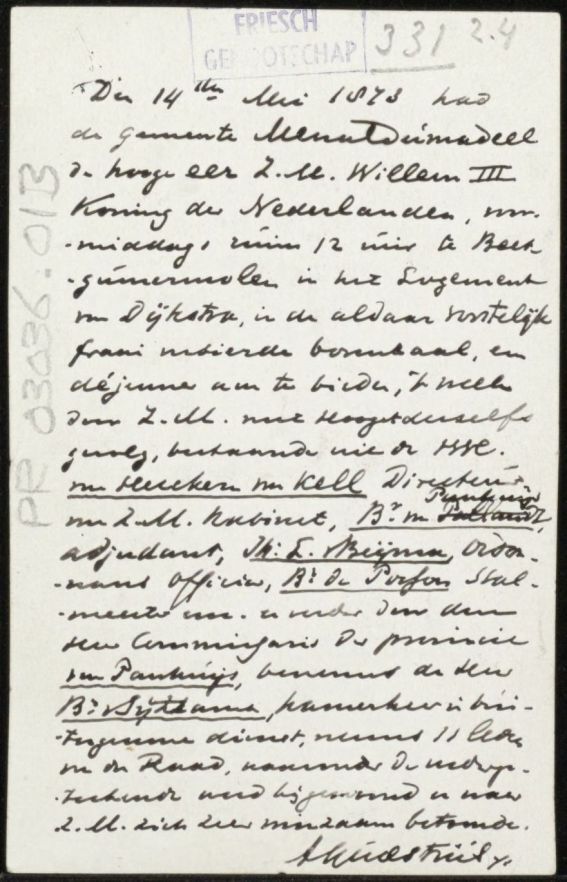 FRIESCH
GENOOTSCHAP
331 2.4
PR 03036.01B
Den 14den Mei 1873 had
de gemeente Menaldumadeel
de hooge eer Z.M. Willem III
Koning der Nederlanden, voor-
-middags ruim 12 uur te Beet-
-gumermolen in het Logement
van Dijkstra, in de aldaar vorstelijk
fraai versierde bovenzaal, een
déjeuner aan te bieden, 't welk
door Z.M. met Hoogstdeszelfs
gevolg, bestaande uit de HH.
van Heeckeren van Kell Directeur
van Z.M. Kabinet, Br. van Pallandt,
adjudant, Beijma, Ordon-
-nans Officier, Br. Du Stal-
-meester enz. en verder door den
Heer Commissaris der provincie
van Panhuijs, benevens de Heer
Br. Sijtzama, kamerheer in bui-
-tengewone dienst, nevens 11 leden
van den Raad, waaronder de onderge-
-teekende werd bijgewoond en waar
Z.M. zich zeer minzaam betoonde.